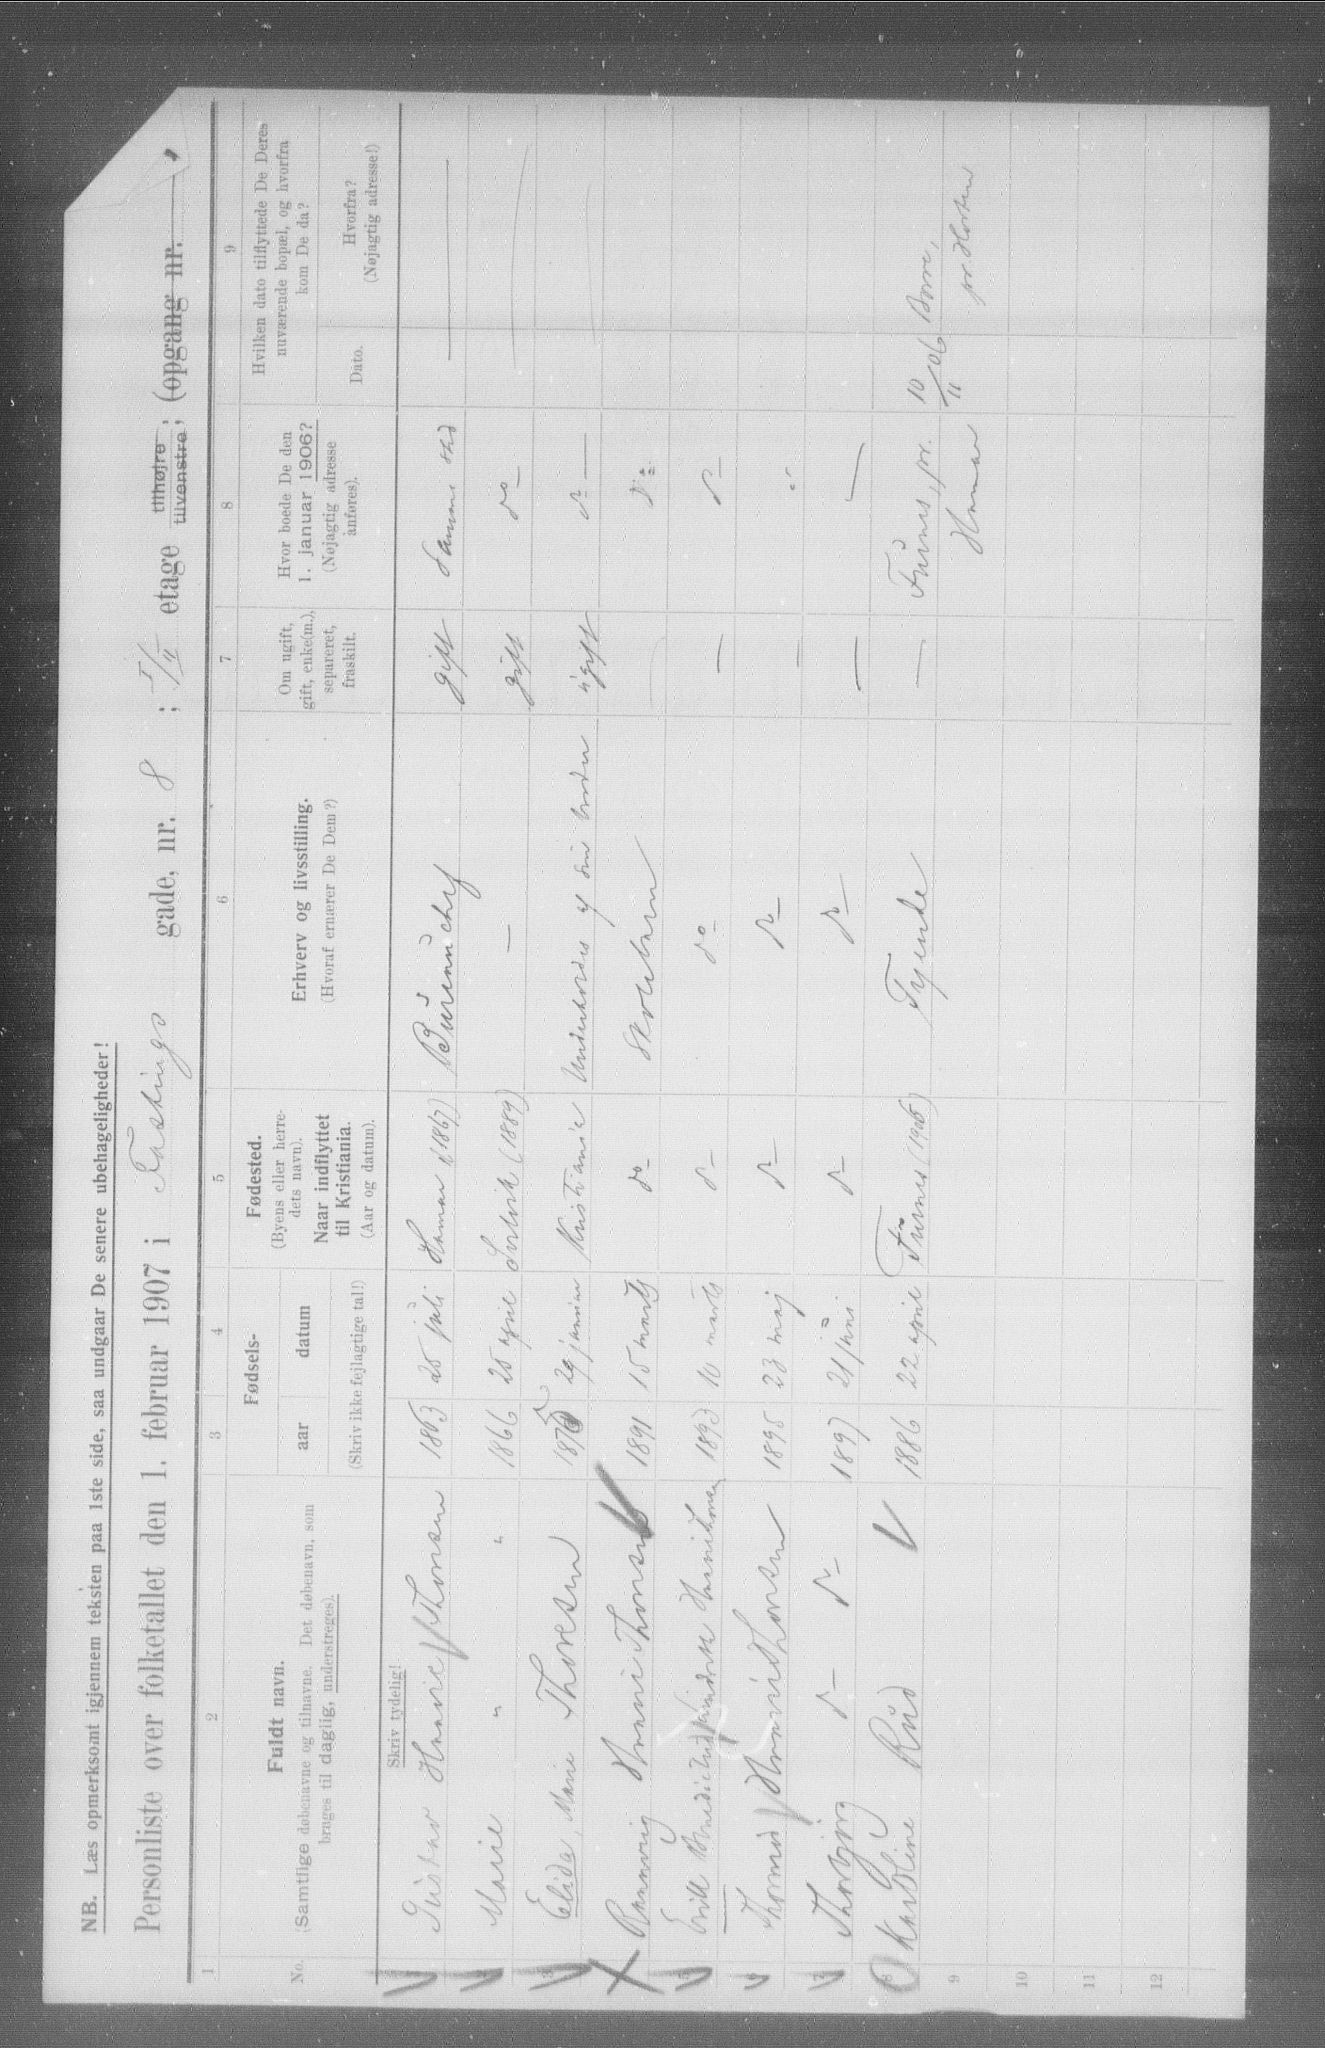 NB. Læs opmerksomt igjennem teksten paa 1ste side, saa undgaar De senere ubehageligheder!
Personliste over folketallet den 1. februar 1907 i Fastings gade, nr. 8 ; I/II etage tilhøjre tilvenstre, (opgang nr.
1 2 3 4 5 6 7 8 9
No.
Fuldt navn.
(Samtlige døbenavne og tilnavne. Det døbenavn, som
bruges til daglig, understreges).
Fødsels-
aar datum
(Skriv ikke fejlagtige tal!)
Fødested.
(Byens eller herre-
dets navn).
Naar indflyttet
til Kristiania.
(Aar og datum).
Erhverv og livsstilling.
(Hvoraf ernærer De Dem?)
Om ugift,
gift, enke(m.),
separeret,
fraskilt.
Hvor boede De den
1. januar 1906?
(Nøjagtig adresse
anføres).
Hvilken dato tilflyttede De Deres
nuværende bopæl, og hvorfra
kom De da?
Dato.
Hvorfra?
(Nøjagtig adresse!)
Skriv tydelig!
Gustav Henrik Thoresen 1863 25 juli Hamar (1867) gift Samme sted
Marie " " 1866 25 april (1889) — gift do
3 Elida, Marie Thoresen 29 januar Kristiania Underholdes af sin broder ugift do —
Rannveig Thoresen 1891 15 marts do Skolebarn do
5 1893 10 marts do do — do
Thomas Thoresen 1895 23 maj do do —
7 Thorbjørg do do 1897 21 juni do do — —
8 Karoline Rud 1886 22 april Furnes (1906) Tjende — Furnes, pr. Hamar 10/11 06 Borre, pr. Horten
9
10
11
12